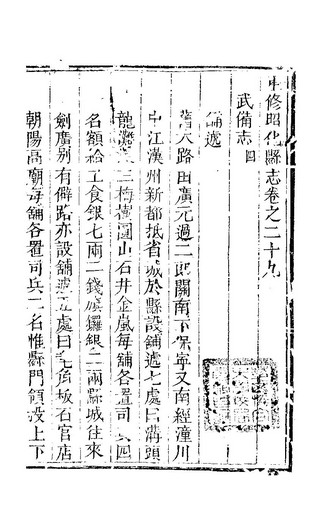 修昭化縣志卷之二十九
武備志四
鋪遞
舊大路由廣元過二郎關南下保寧又南經潼川
中江漢州新都抵省城於縣設舖遞七處曰溝頭
龍灘 三梅樹圓山石井金嵐每舖各置司兵四
名額給工食銀七兩二錢 鑼銀二兩縣城往來
劍廣別有僻路亦設舖遞五處曰七角坂石官店
朝陽高廟每舖各置司兵二名惟縣門領設上下